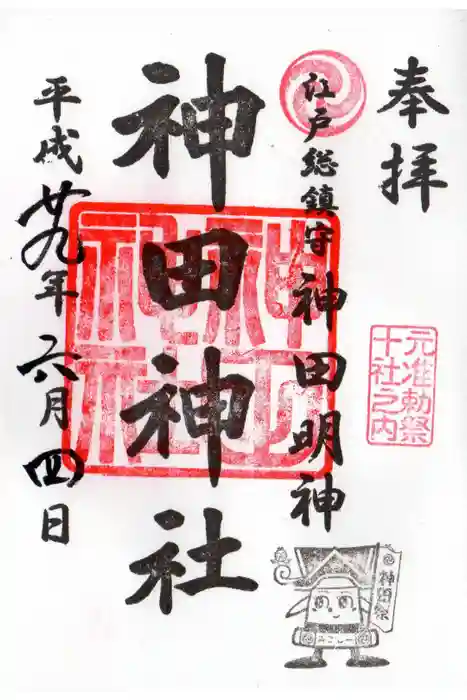 奉拝
元准勅祭
十社之内
江戸総鎮守 神田明神
神田神社
平成廿九年六月四日
神田祭
みこしー